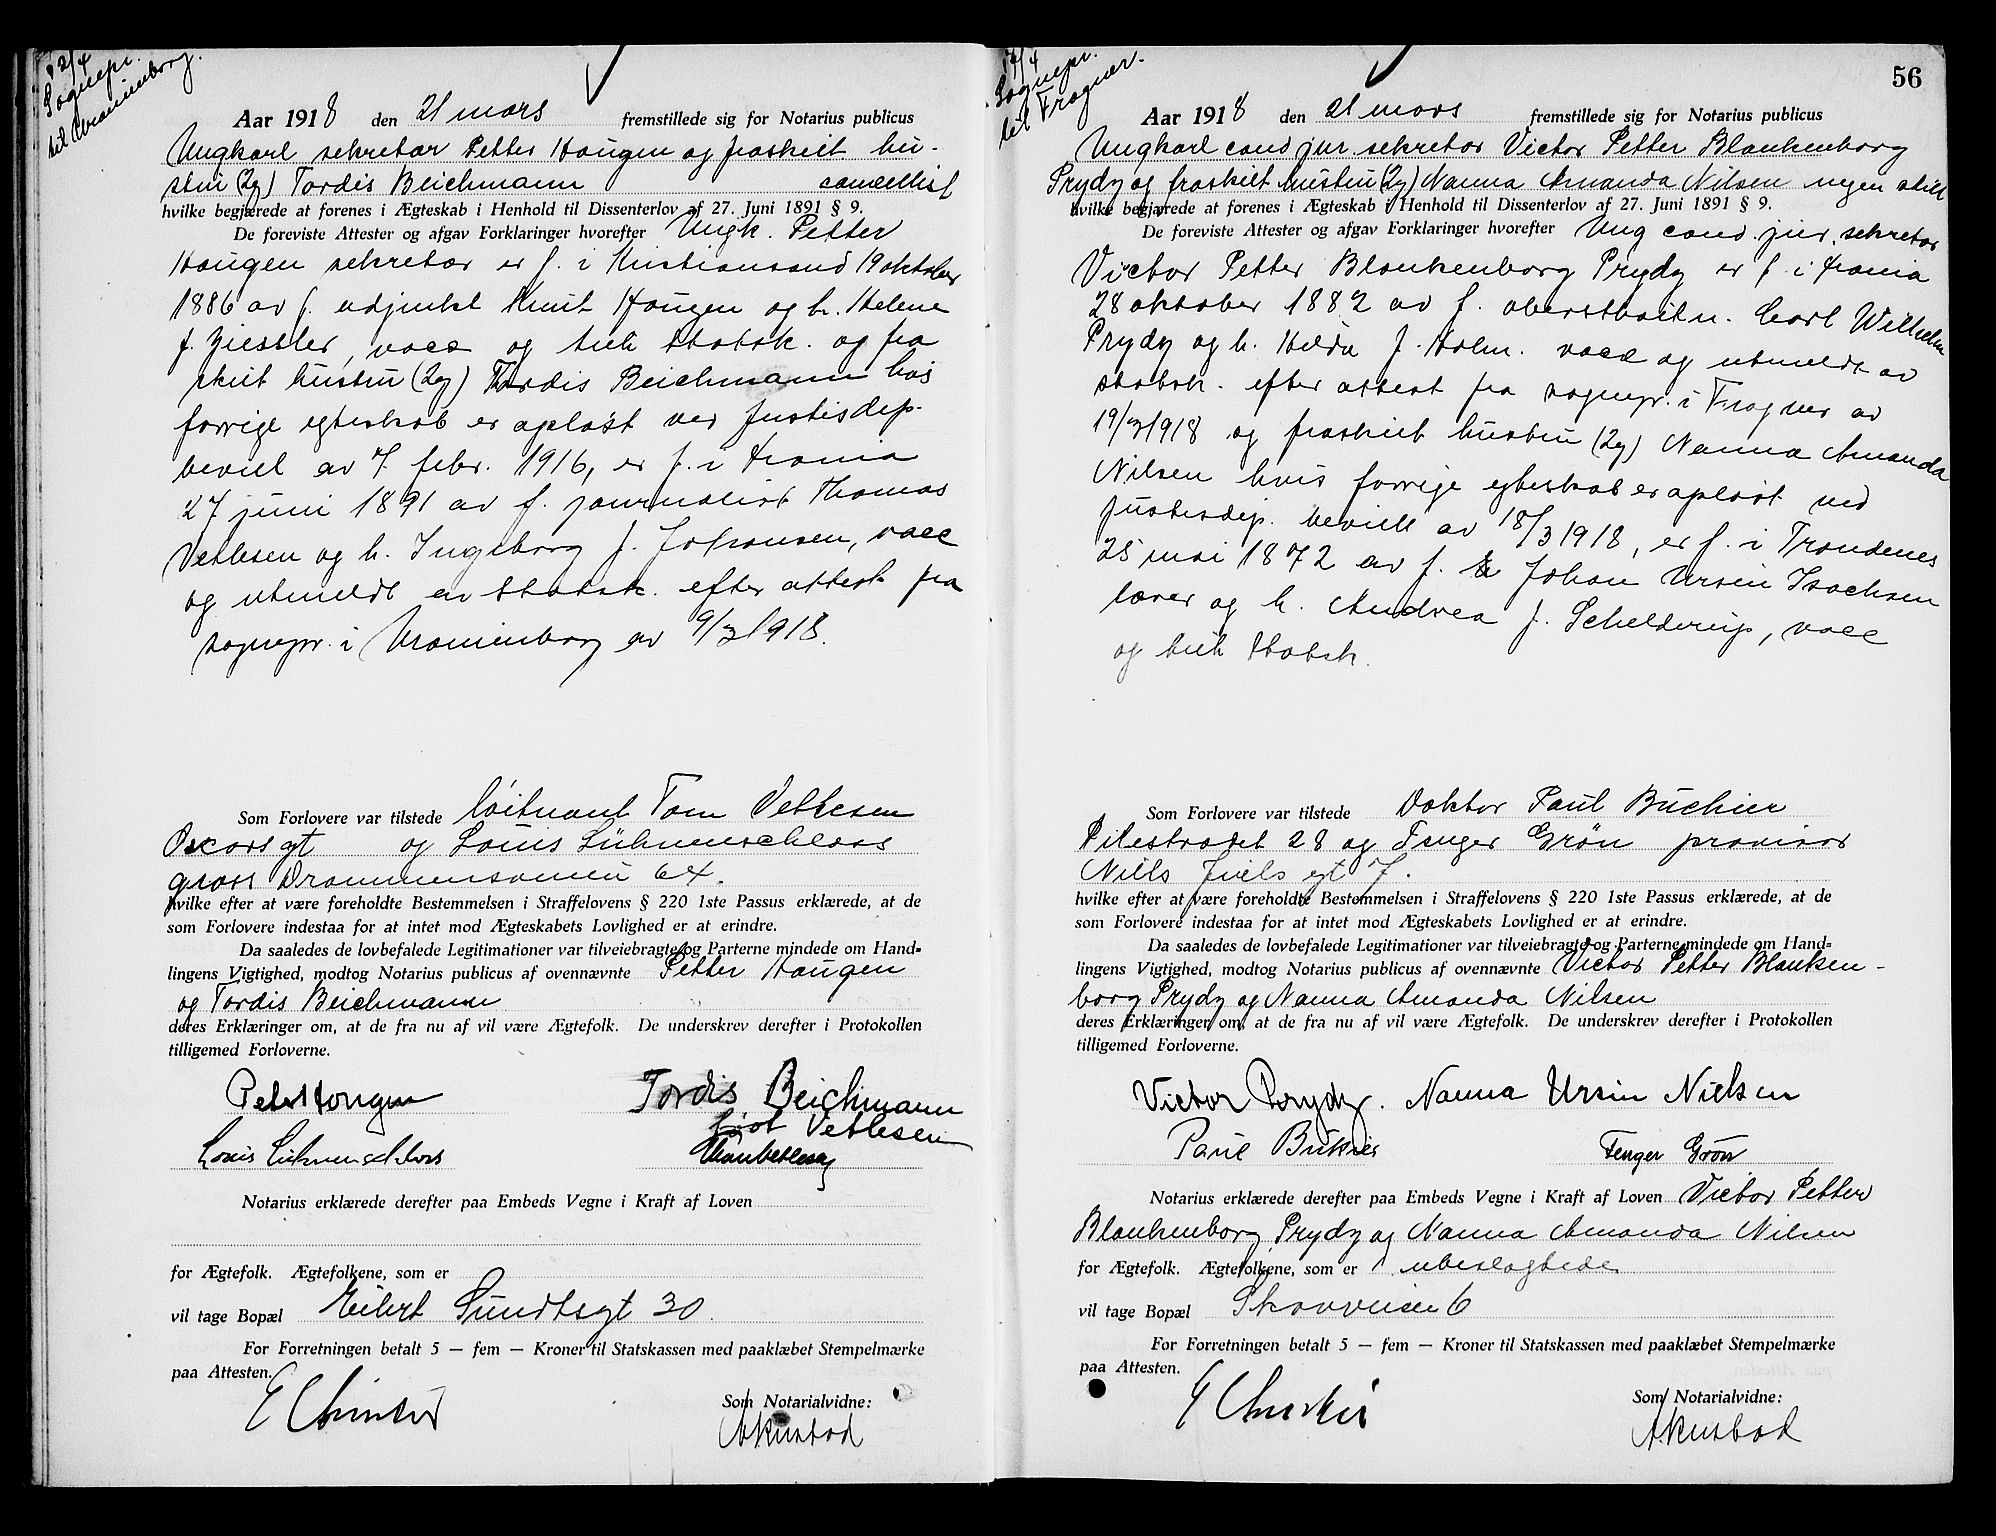 12/4
Sognepr.
til Uranienborg.
Aar 1918 den 21 mars fremstillede sig for Notarius publicus
Ungkarl sekretær Petter Haugen og fraskilt hu-
stru (2g) Tordis Beichmann cancellist
hvilke begjærede at forenes i Ægteskab i Henhold til Dissenterlov af 27. Juni 1891 § 9.
De foreviste Attester og afgav Forklaringer hvorefter Ungk. Petter
Haugen sekretær er f. i Kristiansand 19 oktober
1886 av f. adjunkt Knut Haugen og h. Helene
f. Ziessler, vacc og tilh statsk. og fra
skilt hustru (2g) Tordis Beichmann hvis
forrige egteskab er opløst ved Justisdep.
bevill av 7. febr. 1916, er f. i Krania
27 juni 1891 av f. journalist Thomas
Vetlesen og h. Ingeborg f. Johansen, vacc
og utmeldt av statsk. efter attest fra
sognepr. i Uranienborg av 9/3 1918.
Som Forlovere var tilstede løitnant Tom Vetlesen
Oscarsgt og Louis Lühnenschloss
gross Drammensveien 64.
hvilke efter at være foreholdte Bestemmelsen i Straffelovens § 220 1ste Passus erklærede, at de
som Forlovere indestaa for at intet mod Ægteskabets Lovlighed er at erindre.
Da saaledes de lovbefalede Legitimationer var tilveiebragte og Parterne mindede om Hand-
lingens Vigtighed, modtog Notarius publicus af ovennævnte Petter Haugen
og Tordis Beichmann
deres Erklæringer om, at de fra nu af vil være Ægtefolk. De underskrev derefter i Protokollen
tilligemed Forloverne.
Petter Haugen Tordis Beichmann
født Vetlesen
Louis Lühnenschloss Tom Vetlesen
Notarius erklærede derefter paa Embeds Vegne i Kraft af Loven
for Ægtefolk. Ægtefolkene, som er
vil tage Bopæl Eilert Sundtsgt 30.
For Forretningen betalt 5 — fem — Kroner til Statskassen med paaklæbet Stempelmærke
paa Attesten.
Som Notarialvidne:
AKustad
56
17/4
Sognepr.
til Frogner.
Aar 1918 den 21 mars fremstillede sig for Notarius publicus
Ungkarl cand jur. sekretær Victor Petter Blankenborg
Prydz og fraskilt hustru (2g) Nanna Amanda Nilsen ingen still
hvilke begjærede at forenes i Ægteskab i Henhold til Dissenterlov af 27. Juni 1891 § 9.
De foreviste Attester og afgav Forklaringer hvorefter Ung cand. jur. sekretær
Victor Petter Blankenborg Prydz er f. i Krania
28 oktober 1882 av f. oberstløitn. Carl Wilhelm
Prydz og h. Hilda f. Holm. vacc og utmeldt av
statsk. efter attest fra sognepr. i Frogner av
19/3 1918 og fraskilt hustru (2g) Nanna Amanda
Nilsen hvis forrige egteskab er opløst ved
Justisdep. bevill av 18/3 1918, er f. i Trondenes
25 mai 1872 av f. Johan Ursin Isachsen
lærer og h. Andrea f. Schelderup, vacc
og tilh statsk.
Som Forlovere var tilstede Doktor Paul Buchier
Pilestrædet 28 og Fenger Grøn provisor
Niels Juels gt 7.
hvilke efter at være foreholdte Bestemmelsen i Straffelovens § 220 1ste Passus erklærede, at de
som Forlovere indestaa for at intet mod Ægteskabets Lovlighed er at erindre.
Da saaledes de lovbefalede Legitimationer var tilveiebragte og Parterne mindede om Hand-
lingens Vigtighed, modtog Notarius publicus af ovennævnte Victor Petter Blanken-
borg Prydz og Nanna Amanda Nilsen
deres Erklæringer om, at de fra nu af vil være Ægtefolk. De underskrev derefter i Protokollen
tilligemed Forloverne.
Victor Prydz. Nanna Ursin Nielsen
Paul Fenger Grøn
Notarius erklærede derefter paa Embeds Vegne i Kraft af Loven Victor Petter
Blankenborg Prydz og Nanna Amanda Nilsen
for Ægtefolk. Ægtefolkene, som er ubeslegtede
vil tage Bopæl Skovveien 6
For Forretningen betalt 5 — fem — Kroner til Statskassen med paaklæbet Stempelmærke
paa Attesten.
Som Notarialvidne:
AKustad